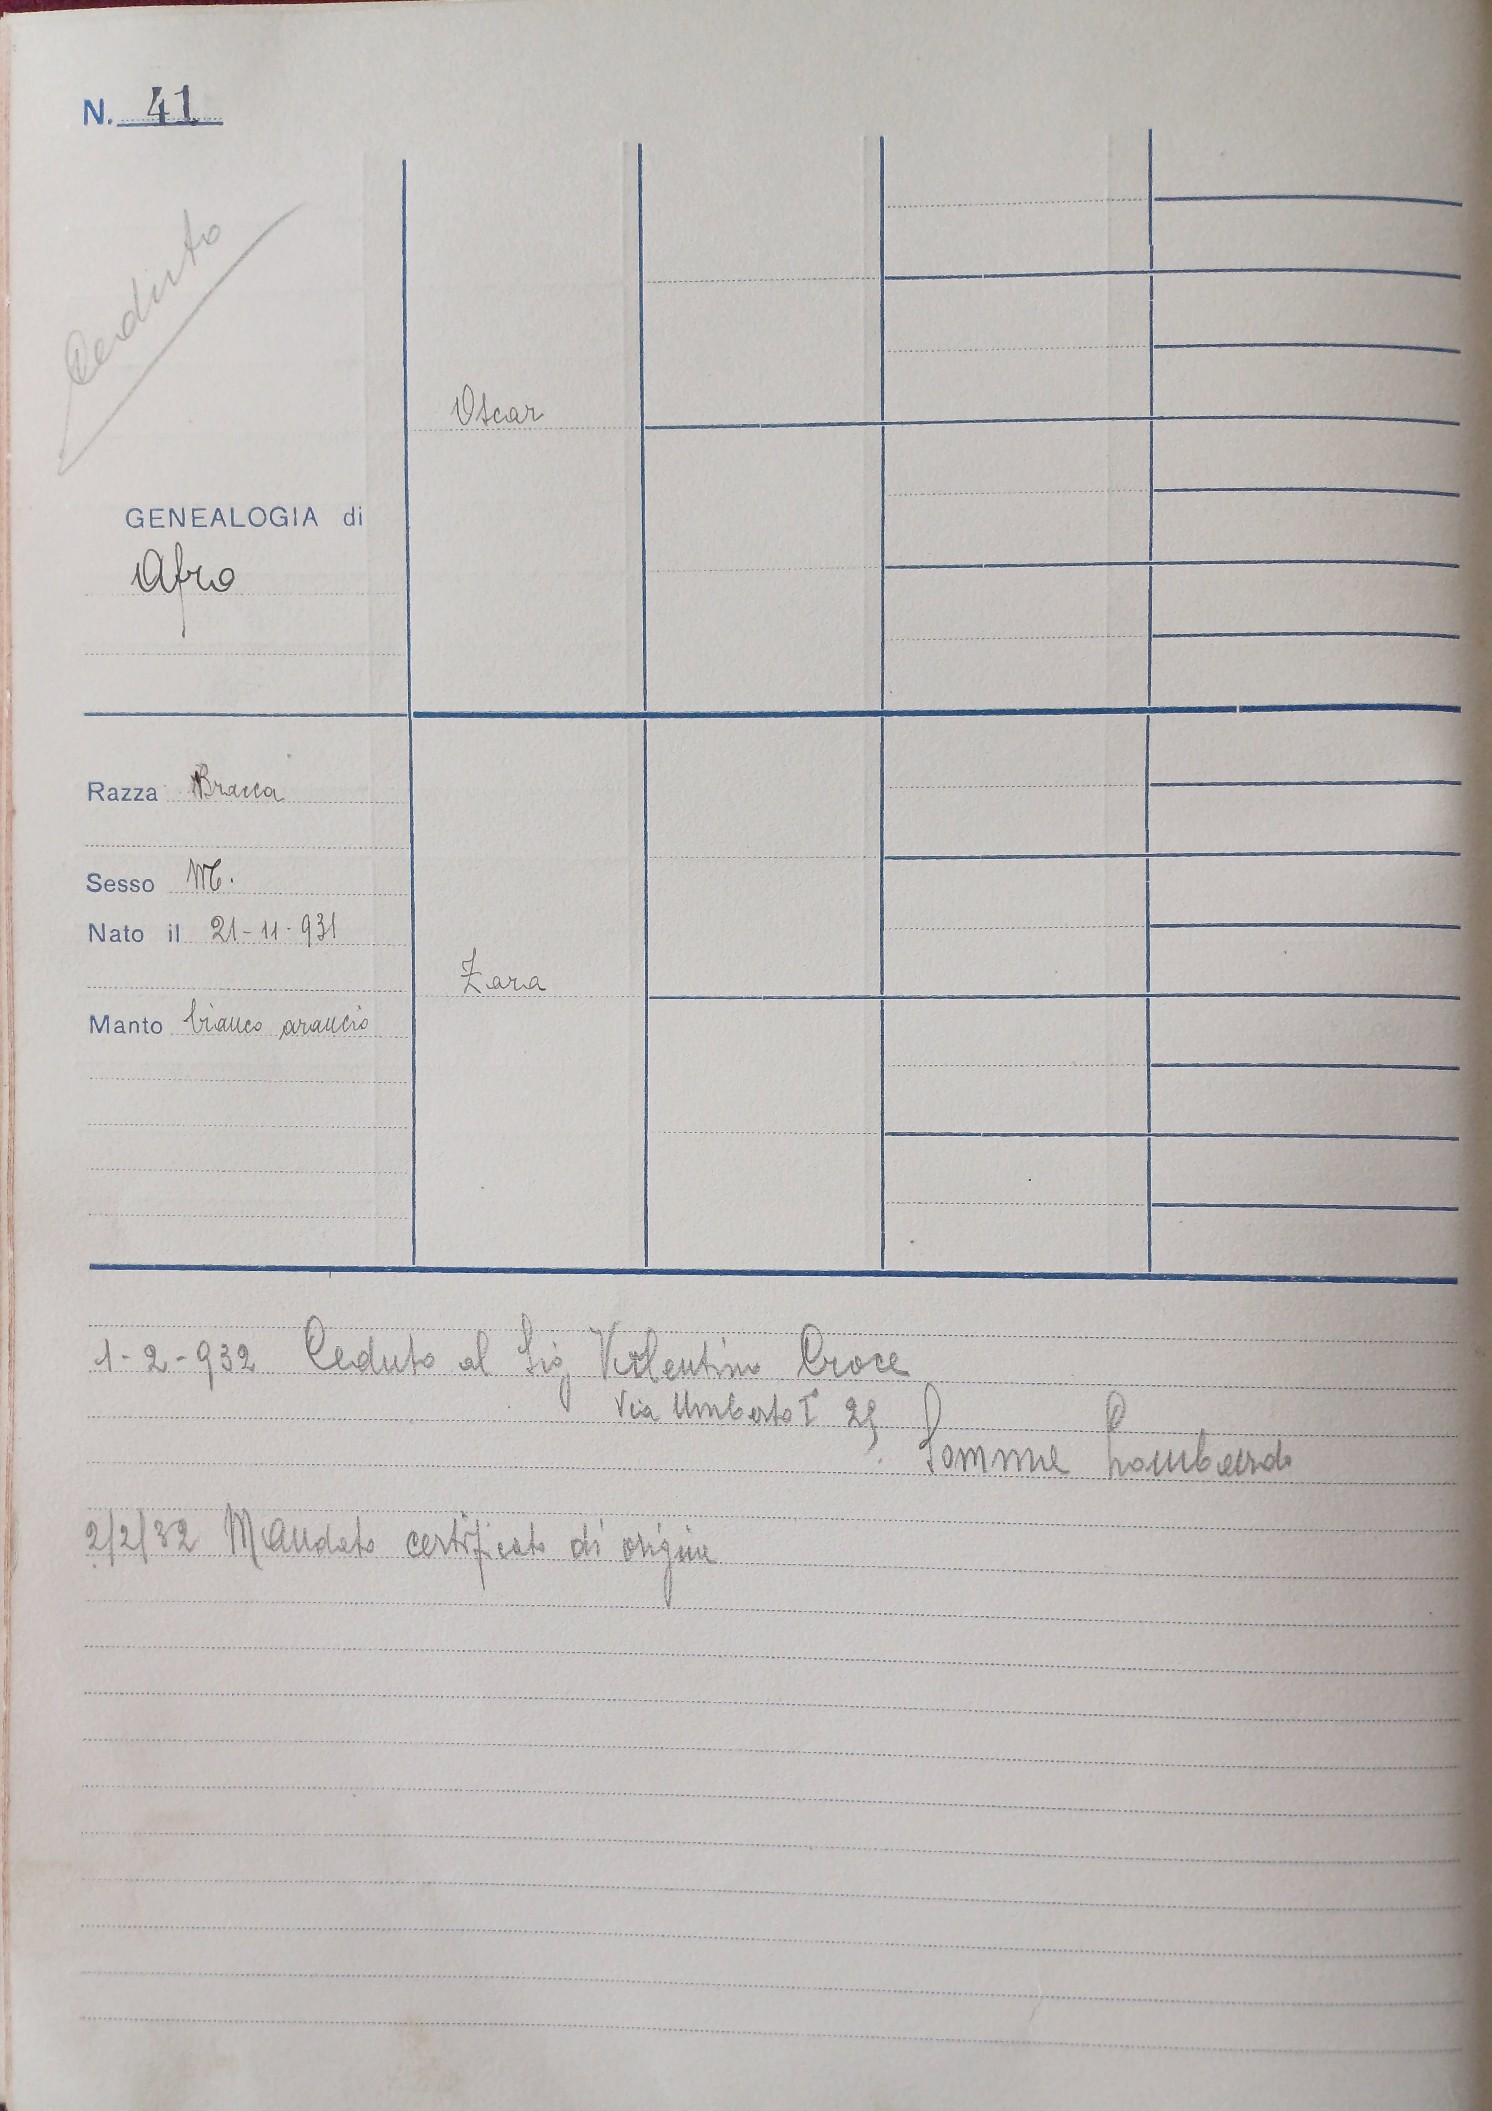 N. 41
Ceduto
Oscar
GENEALOGIA di
Afro
Razza Bracca
Sesso M.
Nato il 21-11-931
Zara
Manto bianco arancio
1-2-932 Ceduto al Sig Valentino Croce
Via Umberto I°
Somma Lombardo
2/2/32 Mandato certificato di origine